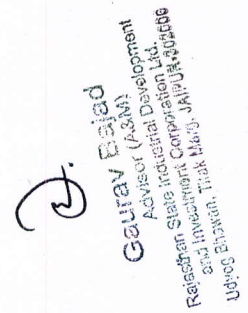 Gaurav Bajad
Advisor (A&M)
Rajasthan State Industrial Development
and Investment Corporation Ltd.
Udyog Bhavan, Tilak Marg, JAIPUR-